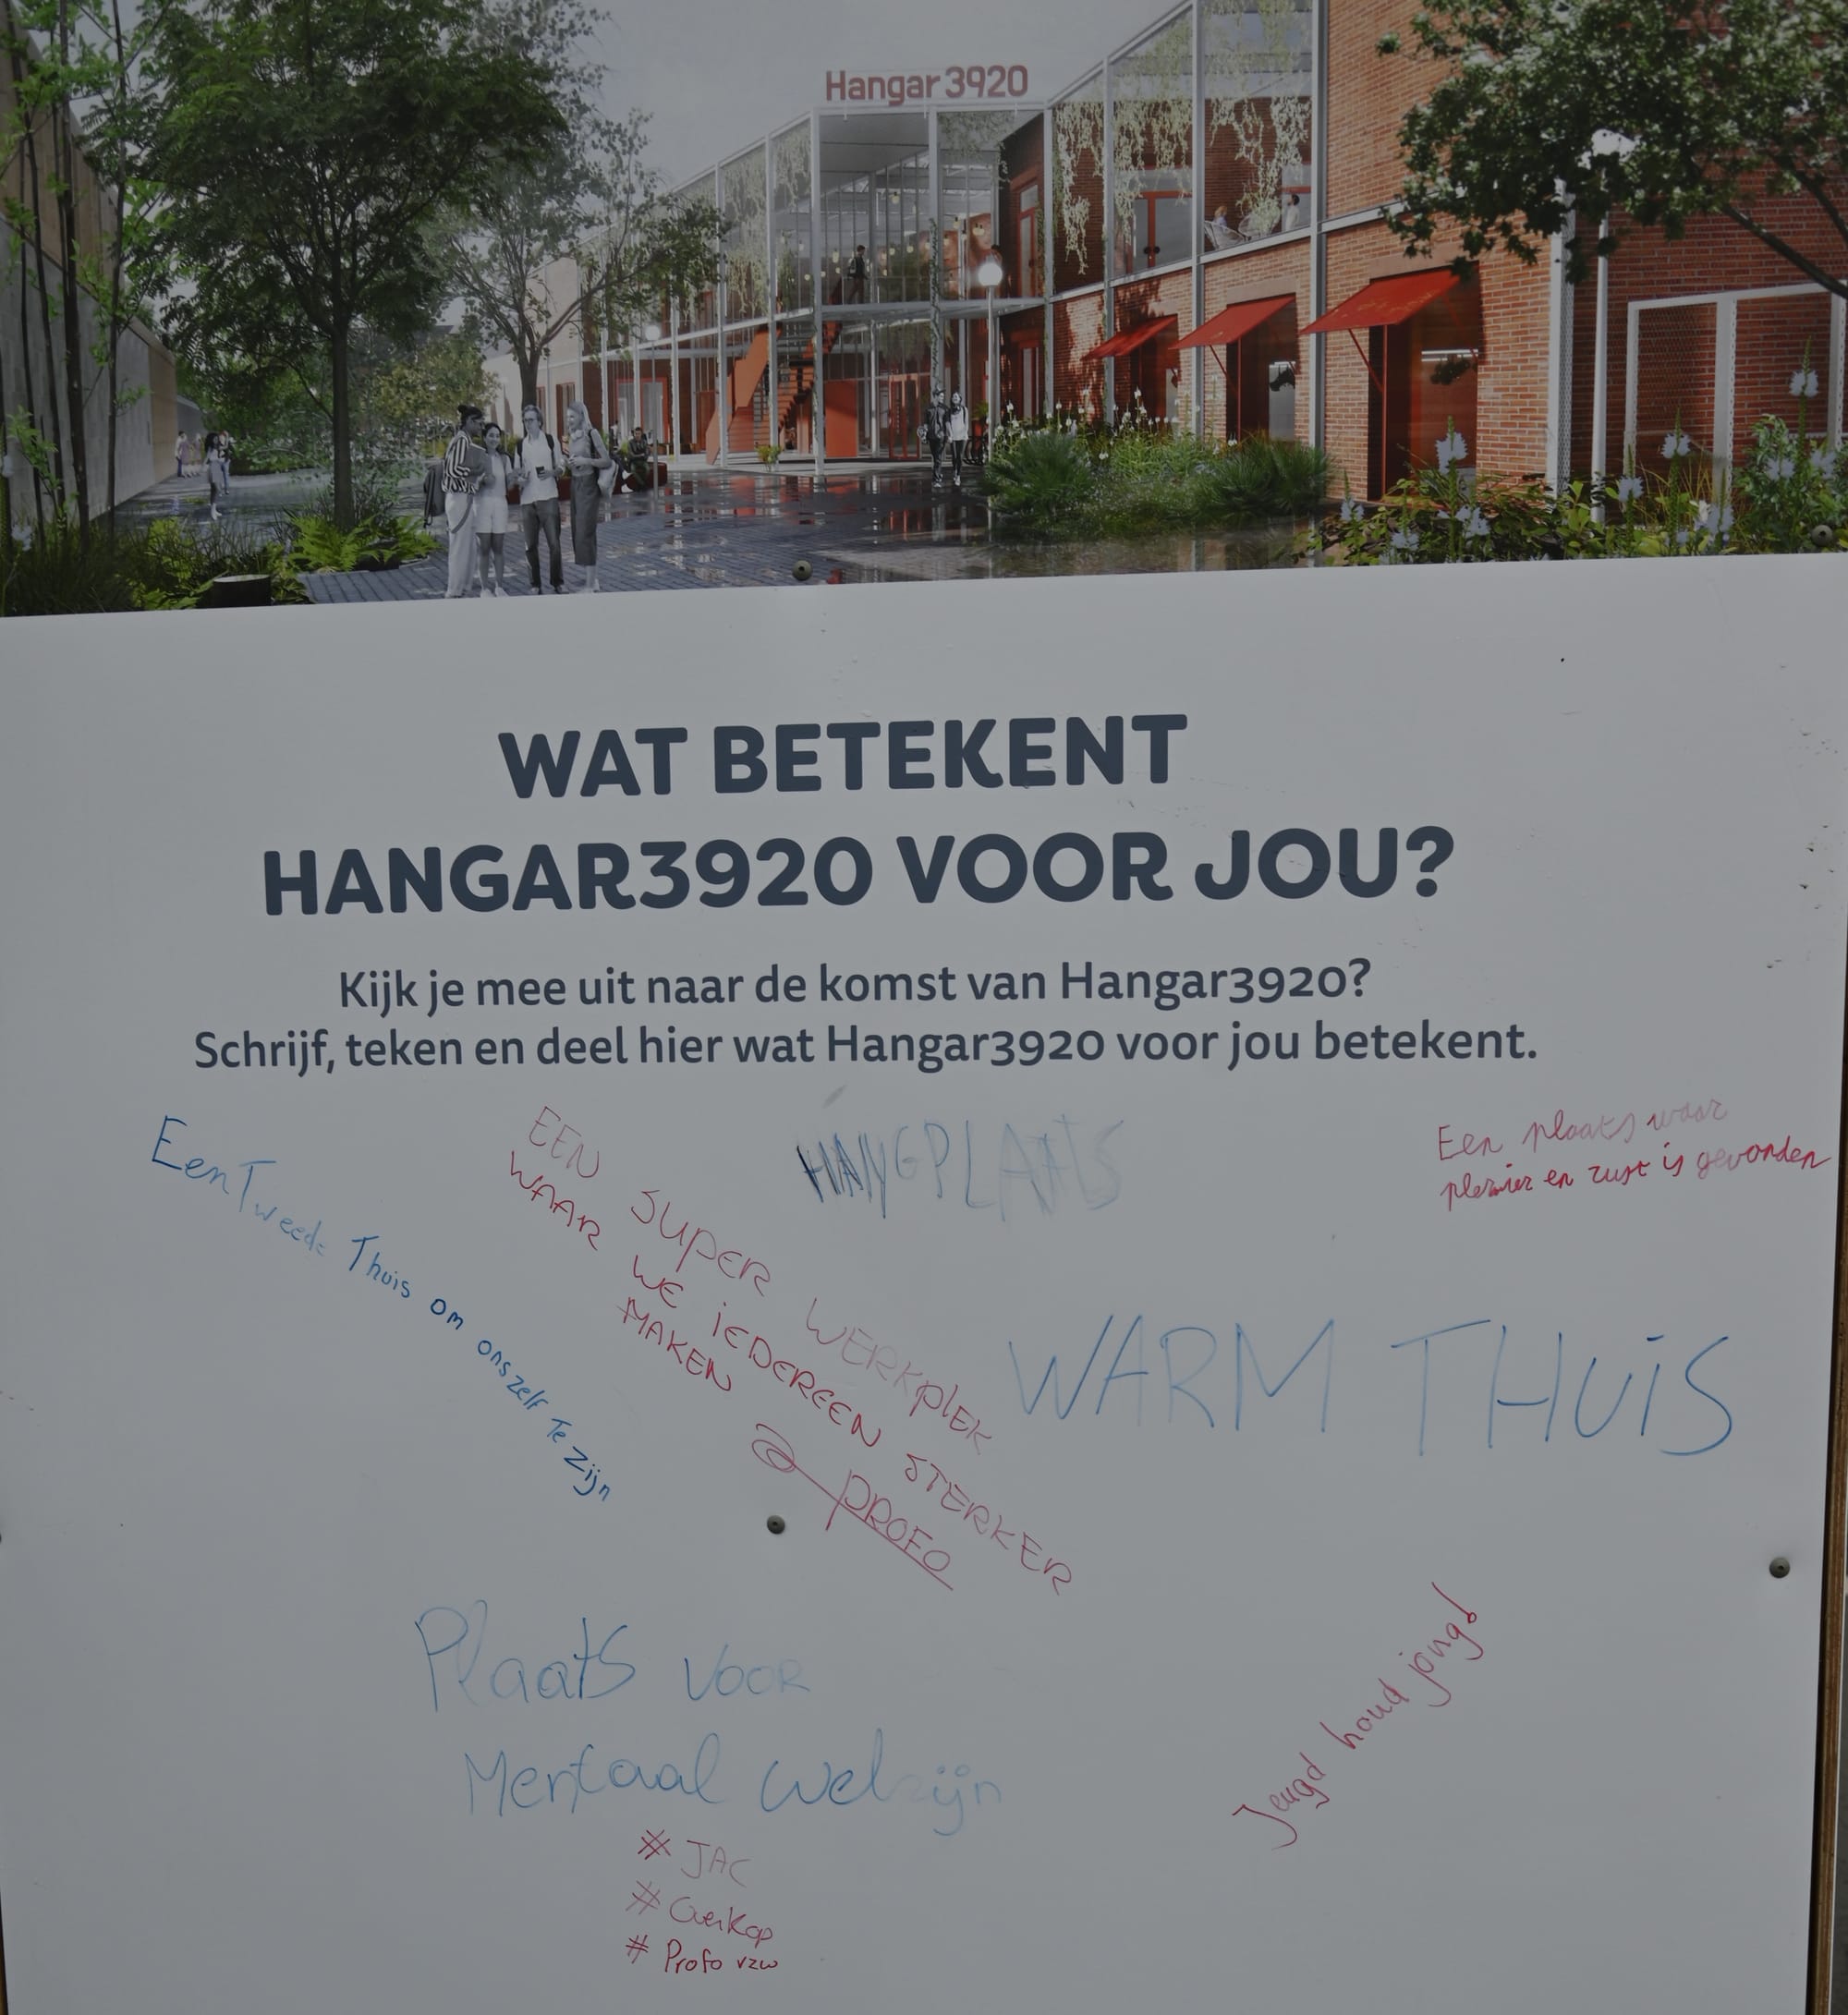 Hangar 3920
WAT BETEKENT
HANGAR3920 VOOR JOU?
Kijk je mee uit naar de komst van Hangar3920?
Schrijf, teken en deel hier wat Hangar3920 voor jou betekent.
Een Tweede Thuis om onszelf Te Zijn
EEN SUPER WERKPLEK
WAAR WE IEDEREEN STERKER
MAKEN @ PROFO
HANGPLAATS
Een plaats waar
plezier en rust is gevonden
WARM THUIS
Plaats voor
Mentaal welzijn
# JAC
# OverKop
# Profo vzw
Jeugd houd jong!